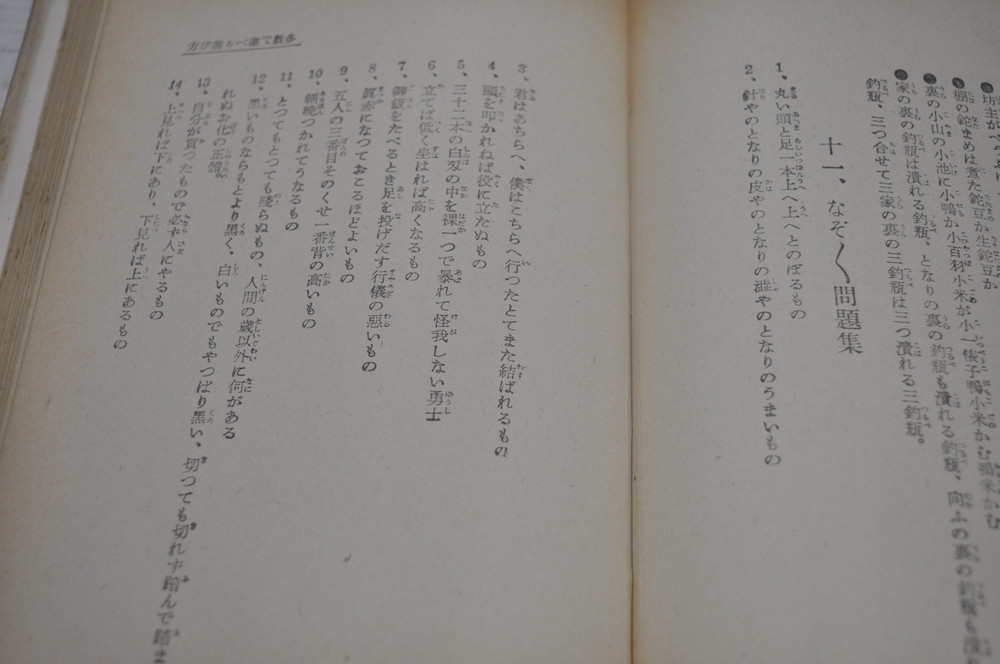 坊主が
棚の鉈まめは煮た鉈豆か生鉈豆か
裏の小山の小池に小鴨が小百羽小米が小一俵子鴨小米かむ鴨米かむ
家の裏の釣瓶は潰れる釣瓶、となりの裏の釣瓶も潰れる釣瓶、向ふの裏の釣瓶も潰
釣瓶、三つ合せて三家の裏の三釣瓶は三つ潰れる三釣瓶。
十一、なぞ〱問題集
1、丸い頭と足一本上へ上へとのぼるもの
2、針やのとなりの皮やのとなりの澁やのとなりのうまいもの
多數で遊べる遊び方
3、君はあちらへ、僕はこちらへ行つたとてまた結ばれるもの
4、頭を叩かれねば役に立たぬもの
5、三十二本の白刄の中を裸一つで暴れて怪我しない勇士
6、立てば低く坐はれば高くなるもの
7、御飯をたべるとき足を投げだす行儀の惡いもの
8、眞赤になつておこるほどよいもの
9、五人の三番目そのくせ一番背の高いもの
10、朝晩つかれてうなるもの
11、とつてもとつても殘らぬもの、人間の歳以外に何がある
12、黑いものならもとより黑く、白いものでもやつぱり黑い、切つても切れず踏んで踏ま
れぬお化の正體
13、自分が買つたもので必ず人にやるもの
14、上見れば下にあり、下見れば上にあるもの